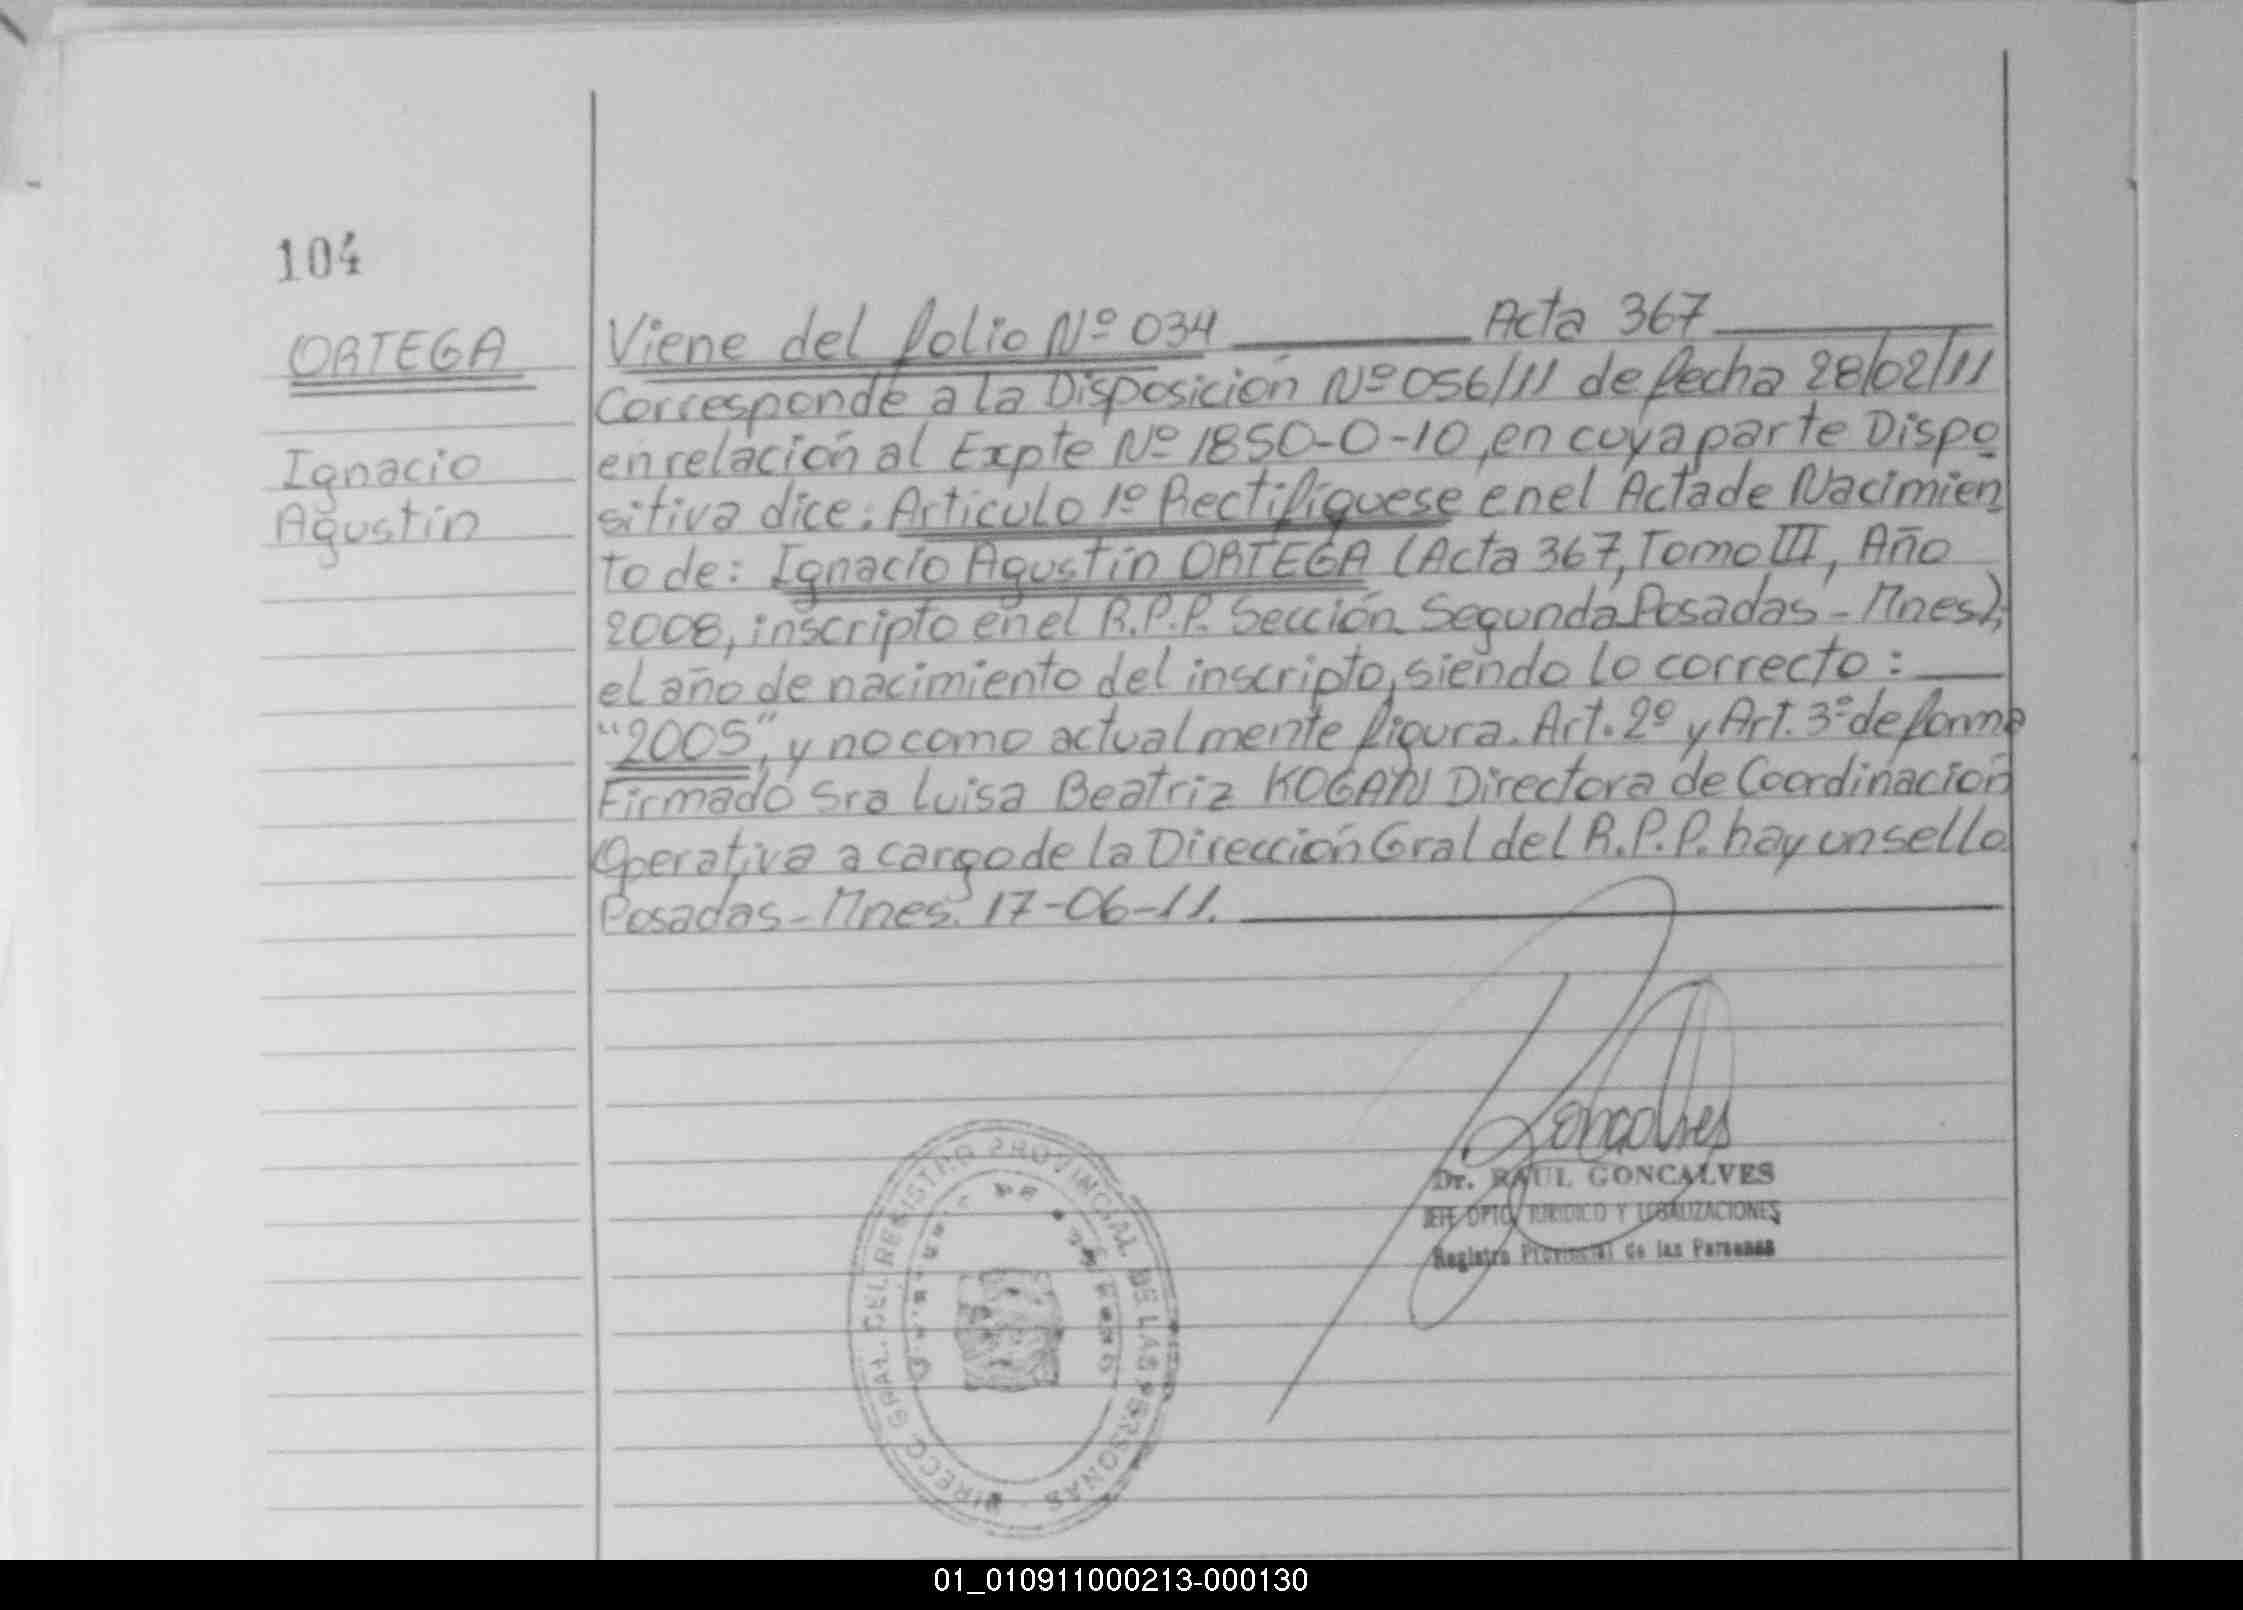 104
ORTEGA
Ignacio
Agustín
Viene del folio Nº 034 Acta 367
Corresponde a la Disposición Nº 056/11 de fecha 28/02/11
en relación al Expte Nº 1850-0-10, en cuya parte Dispo
sitiva dice: Artículo 1º Rectifíquese en el Acta de Nacimien
to de: Ignacio Agustín ORTEGA (Acta 367, Tomo III, Año
2008, inscripto en el R.P.P. Sección Segunda Posadas - Mnes),
el año de nacimiento del inscripto, siendo lo correcto:
"2005", y no como actualmente figura. Art. 2º y Art. 3º de forma
Firmado Sra Luisa Beatriz KOGAN Directora de Coordinación
Operativa a cargo de la Dirección Gral del R.P.P. hay un sello
Posadas - Mnes. 17-06-11.
Goncalves
Dr. RAUL GONCALVES
JEFE DPTO. JURIDICO Y LEGALIZACIONES
Registro Provincial de las Personas
DIRECC. GRAL. DEL REGISTRO PROVINCIAL DE LAS PERSONAS
01_010911000213-000130